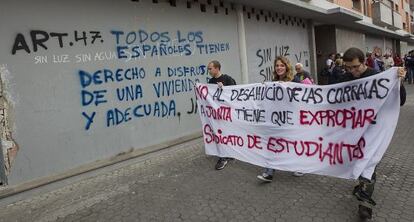 ART. 47.
TODOS LOS
ESPAÑOLES TIENEN
SIN LUZ SIN AGUA
DERECHO A DISFRUTAR
DE UNA VIVIENDA
Y ADECUADA
SIN LUZ
NO AL DESAHUCIO DE LAS CORRALAS
LA JUNTA TIENE QUE EXPROPIAR
SINDICATO DE ESTUDIANTES